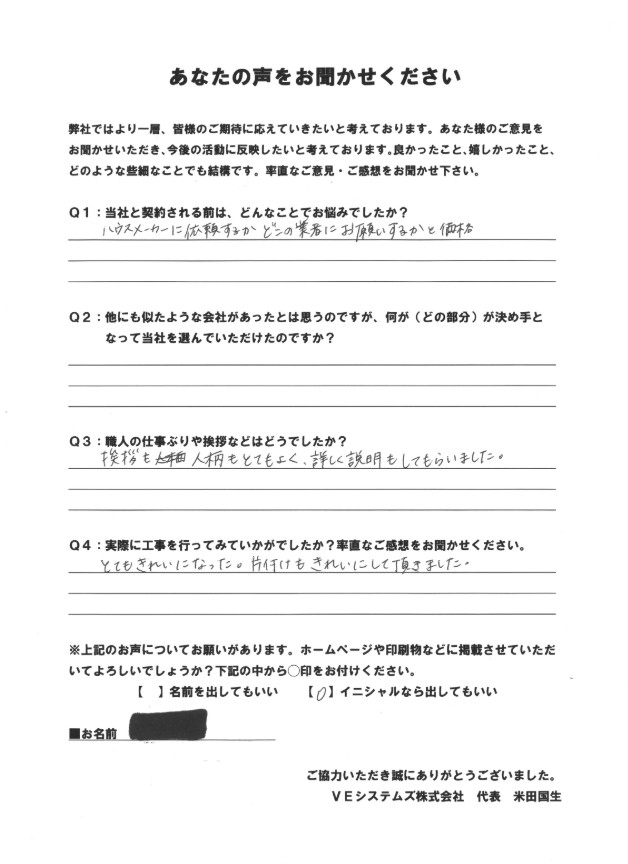 あなたの声をお聞かせください
弊社ではより一層、皆様のご期待に応えていきたいと考えております。あなた様のご意見を
お聞かせいただき、今後の活動に反映したいと考えております。良かったこと、嬉しかったこと、
どのような些細なことでも結構です。率直なご意見・ご感想をお聞かせ下さい。
Q1：当社と契約される前は、どんなことでお悩みでしたか？
ハウスメーカーに依頼するか どこの業者にお願いするかと価格
Q2：他にも似たような会社があったとは思うのですが、何が（どの部分）が決め手と
なって当社を選んでいただけたのですか？
Q3：職人の仕事ぶりや挨拶などはどうでしたか？
挨拶も 人柄もとてもよく、詳しく説明もしてもらいました。
Q4：実際に工事を行ってみていかがでしたか？率直なご感想をお聞かせください。
とてもきれいになった。片付けもきれいにして頂きました。
※上記のお声についてお願いがあります。ホームページや印刷物などに掲載させていただ
いてよろしいでしょうか？下記の中から◯印をお付けください。
【　】名前を出してもいい　【○】イニシャルなら出してもいい
■お名前
ご協力いただき誠にありがとうございました。
VEシステムズ株式会社　代表　米田国生